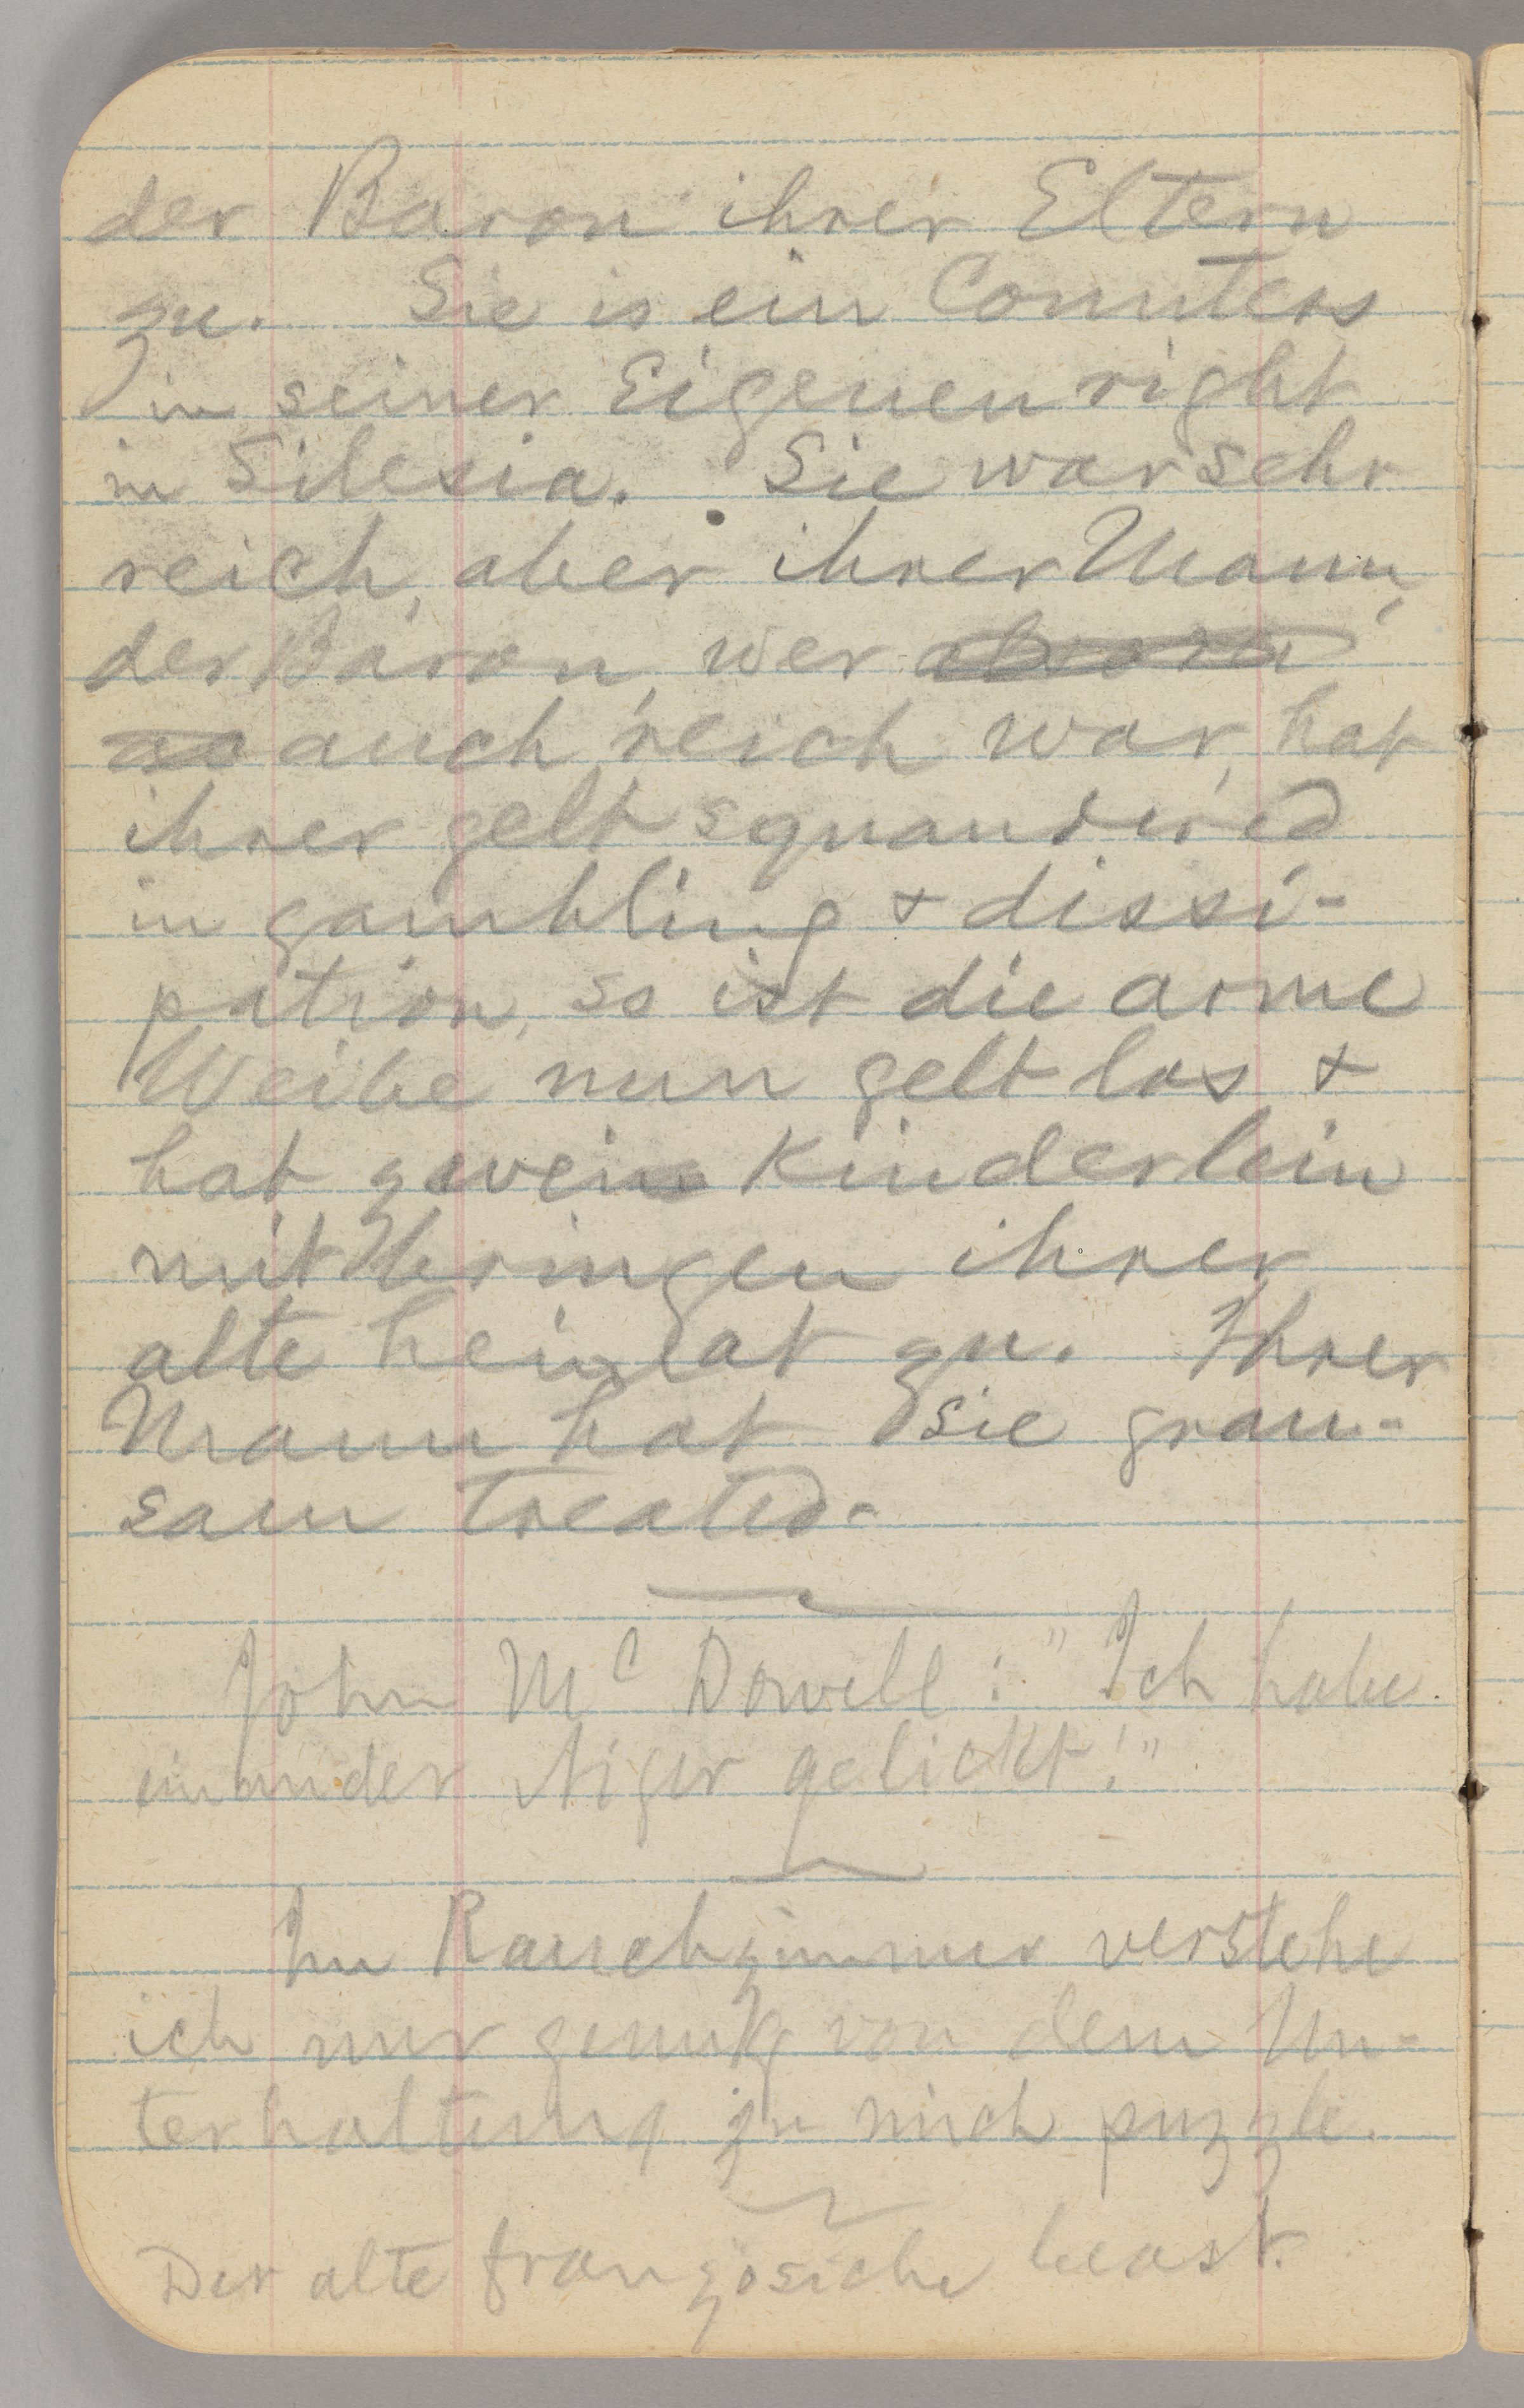 der Baron ihrer Eltern
zu. Sie is ein Countess
in seiner Eigenen right
in Silesia. Sie war sehr
reich, aber ihrer Mann,
der Baron, wer
auch reich war, hat
ihrer gelt squandered
in gambling & dissi-
pation, so ist die arme
Weibe nun geltlos &
hat zwei Kinderlein
mit bringen ihrer
alte heimat zu. Ihrer
Mann hat sie grau-
sam treated.
John McDowell: "Ich habe
einander Niger gelickt!"
Im Rauchzimmer verstehe
ich nur genug von dem Un-
terhaltung zu mich puzzle.
Der alte französiche beast.